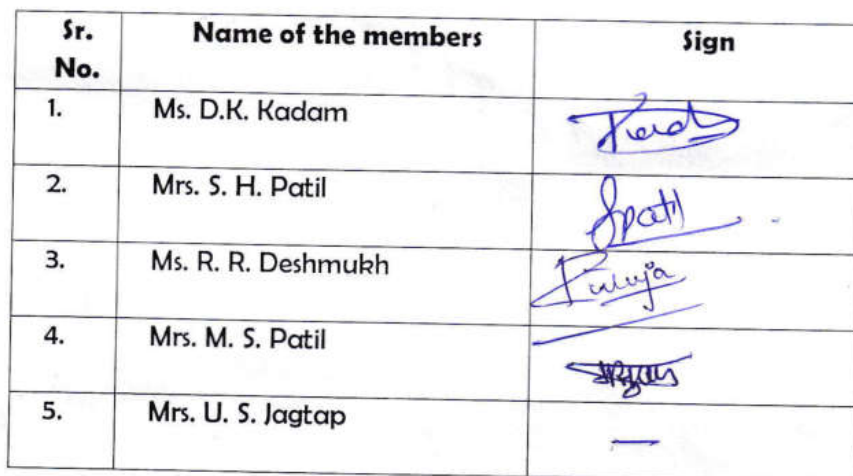 Sr. No. Name of the members Sign
1. Ms. D.K. Kadam
2. Mrs. S. H. Patil Spatil
3. Ms. R. R. Deshmukh
4. Mrs. M. S. Patil
5. Mrs. U. S. Jagtap —